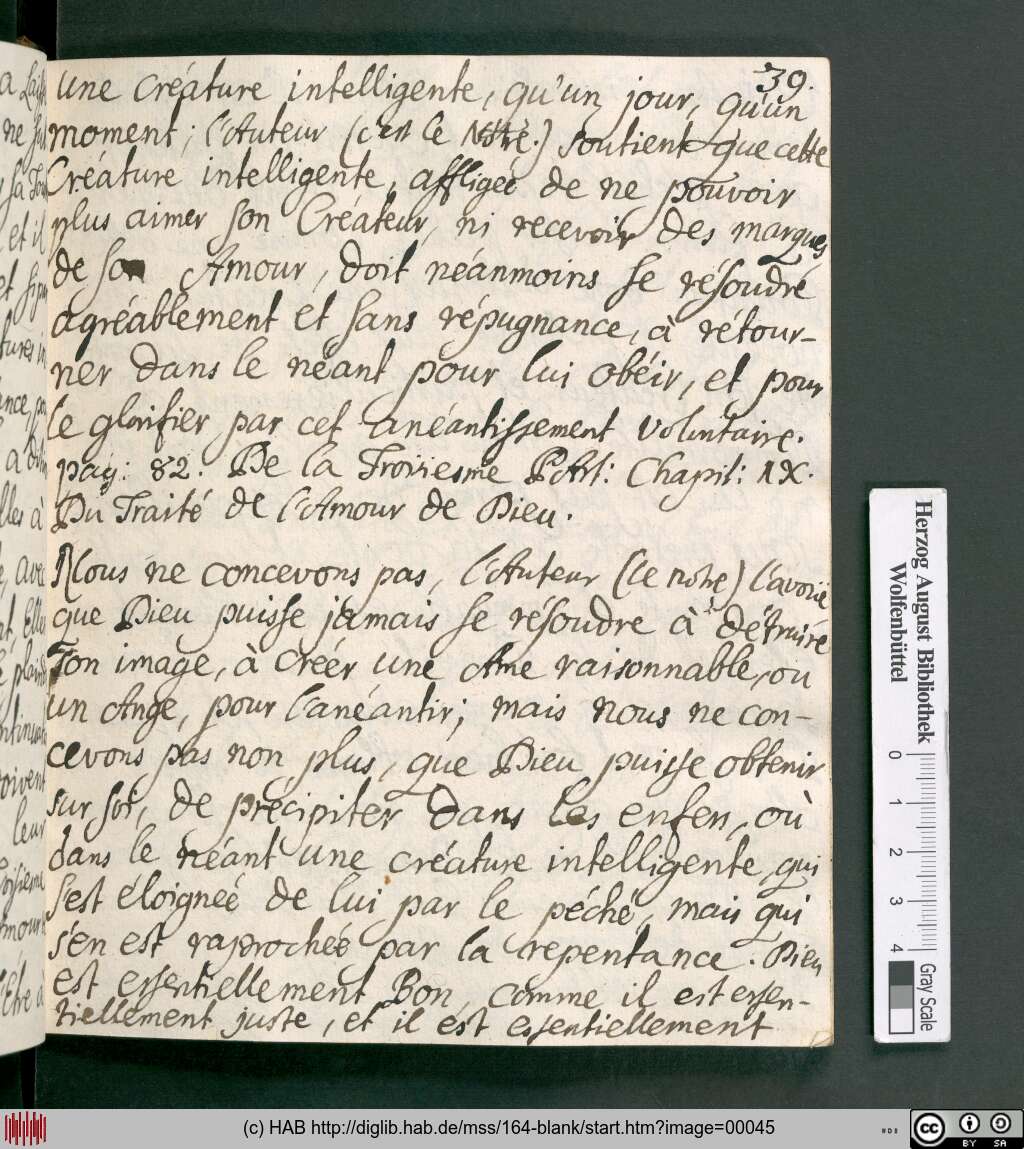 39.
une créature intelligente, qu'un jour, qu'un
moment; l'Auteur (c'est le Nôtre.) soutient que cette
Créature intelligente, affligeé de ne pouvoir
plus aimer son Créateur, ni recevoir des marques
de son Amour, doit néanmoins se résoudré
agréablement et sans répugnance, à rétour-
ner dans le néant pour lui obéir, et pour
le glorifier par cet anéantissement volontaire.
pag: 82: De la Troisiesme PArt: Chapit: IX.
Du Traité de l'Amour de Dieu.
Nous ne concevons pas, l'Auteur (le notre) l'avoüe
que Dieu puisse jamais se résoudre à détruiré
son image, à créér une Ame raisonnable, ou
un Ange, pour l'anéantir; mais nous ne con-
cevons pas non plus, que Dieu puisse obtenir
sur soi, de précipiter dans les enfen, où
dans le néant une créature intelligente, qui
s'est éloigneé de lui par le péché, mais qui
s'en est raprocheé par la repentance. Dieu
est essentiellement Bon, comme il est essen-
tiellement juste, et il est essentiellement
Herzog August Bibliothek
Wolfenbüttel
0 1 2 3 4
Gray Scale
(c) HAB http://diglib.hab.de/mss/164-blank/start.htm?image=00045
cc BY SA